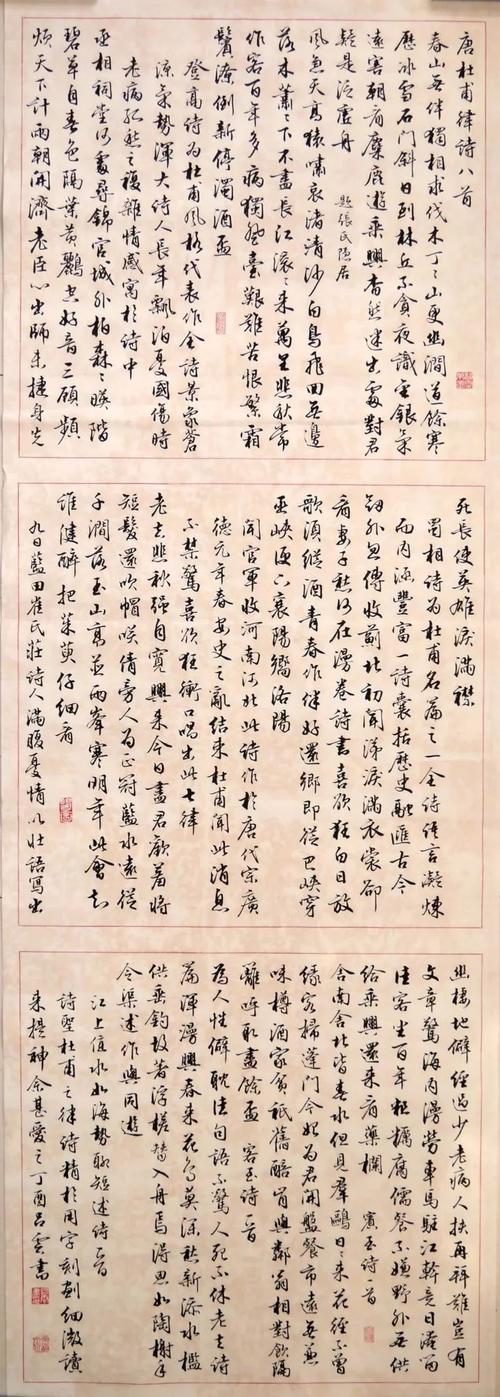 唐杜甫律詩八首
春山無伴獨相求伐木丁々山更幽澗道餘寒
歷冰雪石門斜日到林丘不貪夜識金銀氣
遠害朝看麋鹿遊乘興杳然迷出處對君
疑是泛虛舟 題張氏隱居
風急天高猿嘯哀渚清沙白鳥飛回無邊
落木蕭々下不盡長江滾々來萬里悲秋常
作客百年多病獨登臺艱難苦恨繁霜
鬢潦倒新停濁酒盃
登高詩為杜甫風格代表作全詩景象蒼
涼氣勢渾大詩人長年飄泊憂國傷時
老病孤愁之複雜情感寓於詩中
丞相祠堂何處尋錦官城外柏森々映階
碧草自春色隔葉黃鸝空好音三顧頻
煩天下計兩朝開濟老臣心出師未捷身先
死長使英雄淚滿襟
蜀相詩為杜甫名篇之一全詩語言凝煉
而內涵豐富一詩囊括歷史融匯古今
劍外忽傳收薊北初聞涕淚滿衣裳卻
看妻子愁何在漫卷詩書喜欲狂白日放
歌須縱酒青春作伴好還鄉即從巴峽穿
巫峽便下襄陽嚮洛陽
聞官軍收河南河北此詩作於唐代宗廣
德元年春安史之亂結束杜甫聞此消息
不禁驚喜欲狂衝口唱出此七律
老去悲秋強自寬興來今日盡君歡羞將
短髮還吹帽咲倩旁人為正冠藍水遠從
千澗落玉山高並兩峯寒明年此會知
誰健醉把茱萸仔細看
九日藍田崔氏莊詩人滿腹憂情以壯語寫出
幽棲地僻經過少老病人扶再拜難豈有
文章驚海內漫勞車馬駐江幹竟日淹留
佳客坐百年粗糲腐儒餐不嫌野外無供
給乘興還來看藥欄 賓至詩一首
舍南舍北皆春水但見群鷗日々來花徑不曾
緣客掃蓬門今始為君開盤餐市遠無兼
味樽酒家貧秖舊醅肯與鄰翁相對飲隔
籬呼取盡餘盃 客至詩一首
為人性僻耽佳句語不驚人死不休老去詩
篇渾漫興春來花鳥莫深愁新添水檻
供垂釣故著浮槎替入舟焉得思如陶謝手
令渠述作與同遊
江上值水如海勢聊短述詩一首
詩聖杜甫之律詩精於用字刻劃細微讀
來提神余甚愛之丁酉呂雲書